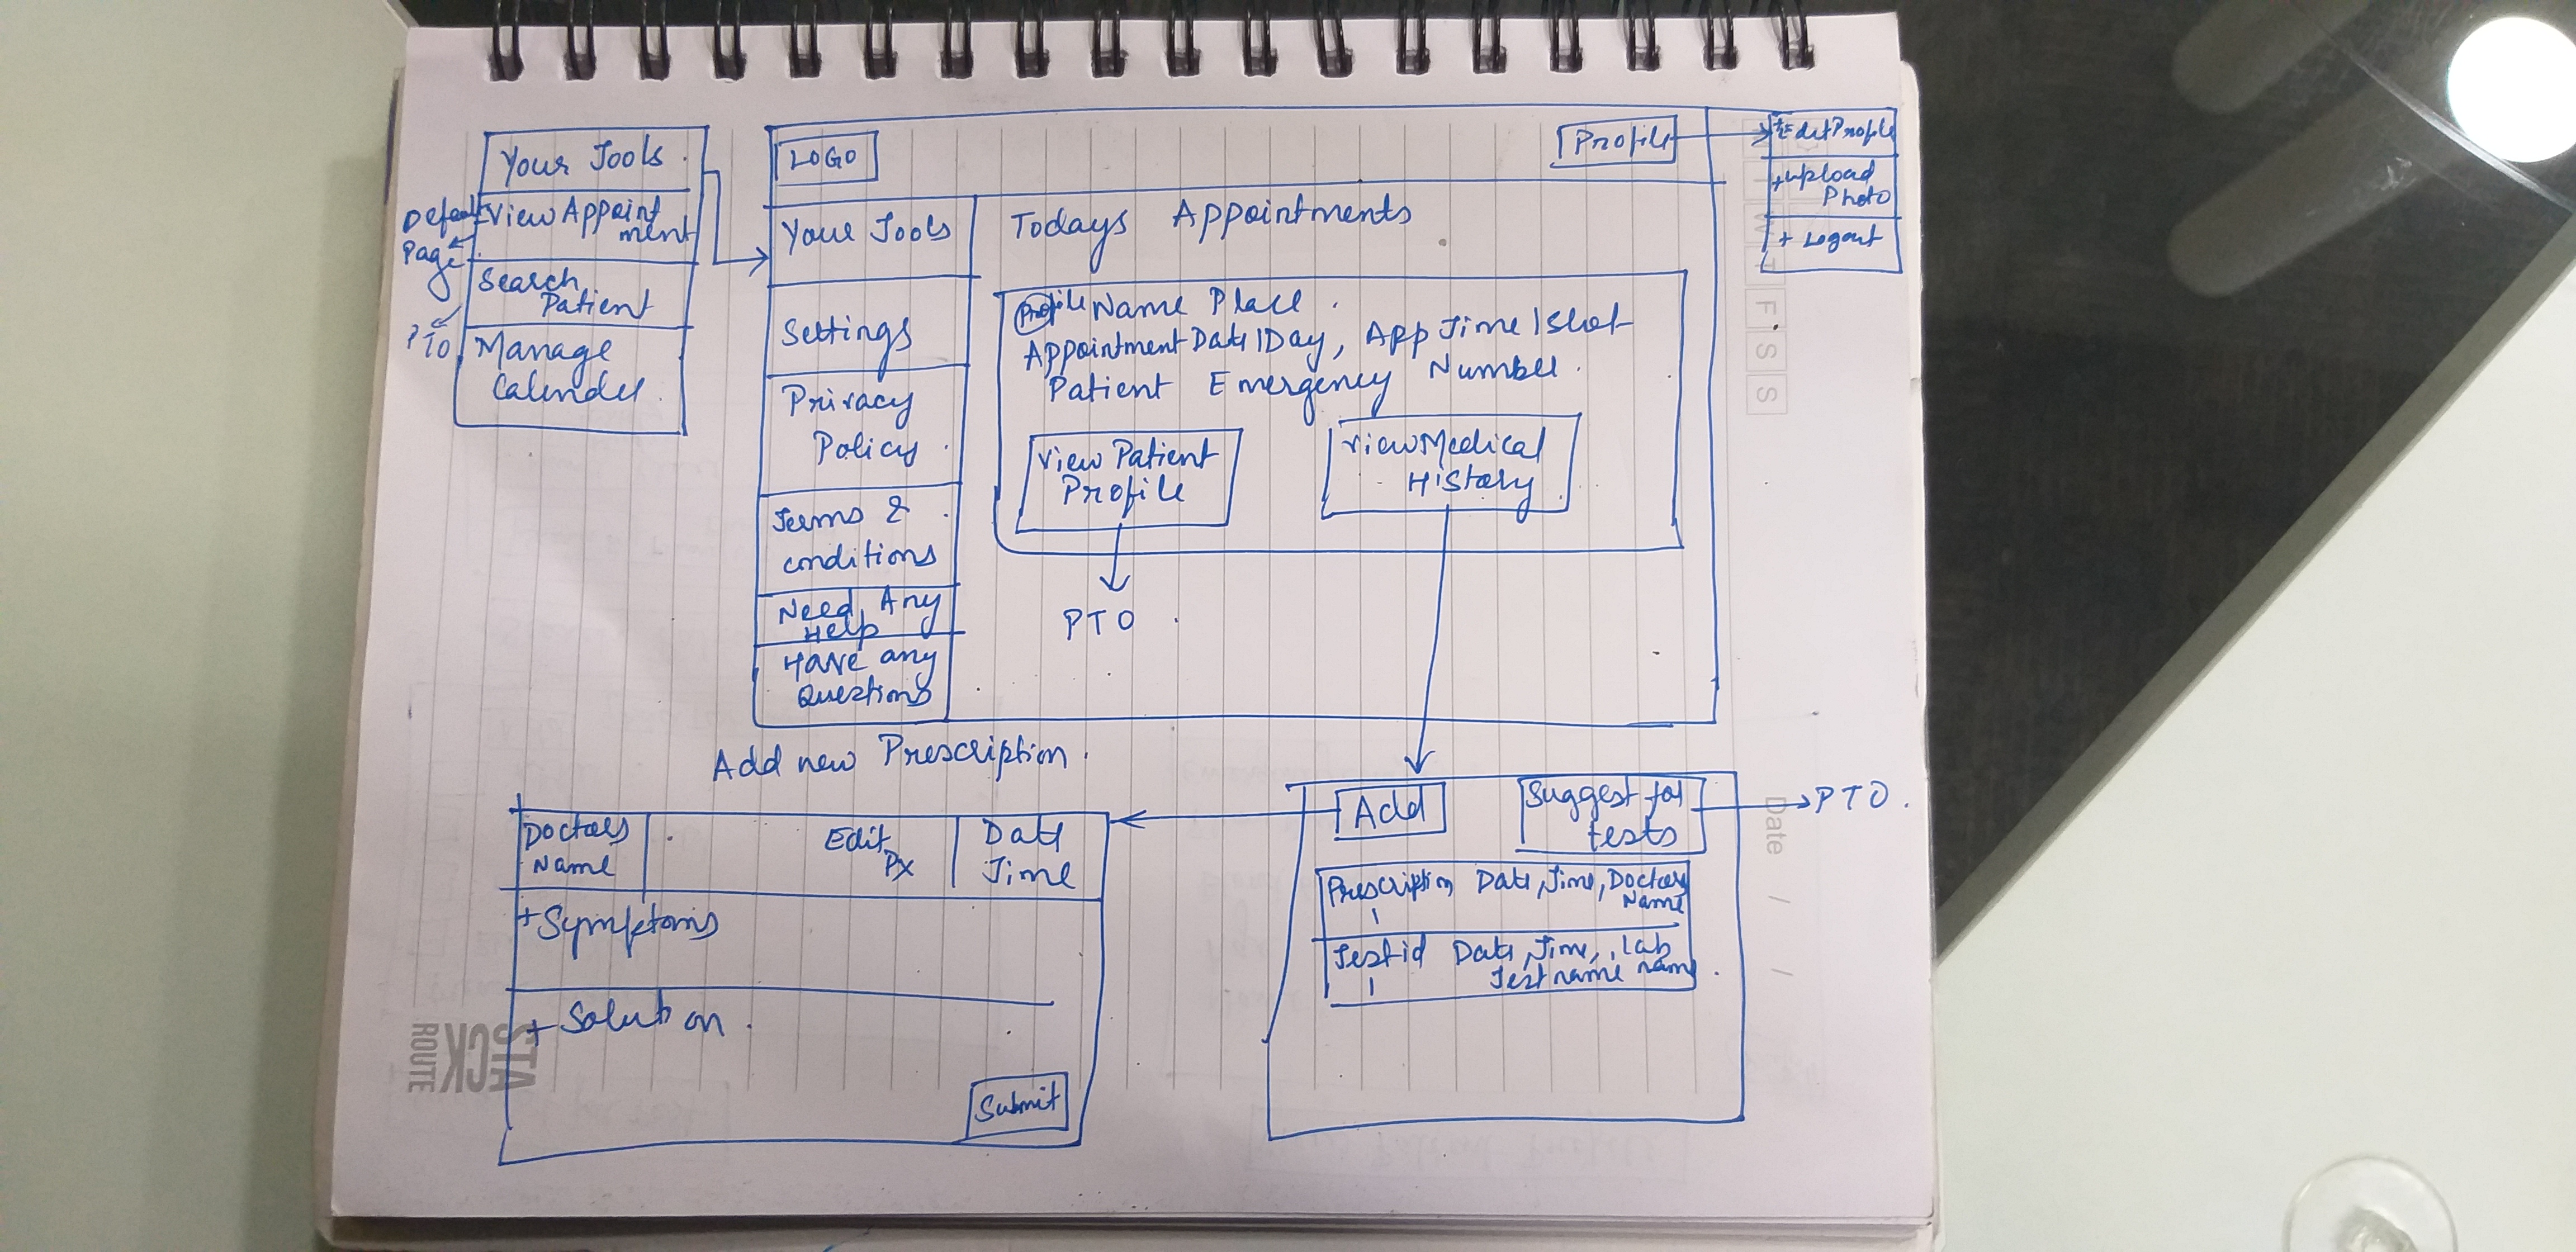 Your Tools.
View Appoint
ment
Default
Page
Search
Patient
PTO
Manage
Calender.
LOGO
Profile
+ Edit Profile
+ upload
Photo
+ Logout
Your Tools
Settings
Privacy
Policy.
Terms &
conditions
Need Any
Help
Have any
Questions
Todays Appointments
Profile Name Place.
Appointment Date|Day, App Time|Slot
Patient Emergency Number.
View Patient
Profile
View Medical
History
PTO.
Add new Prescription.
Doctors
Name
Edit
Px
Date
Time
+ Symptoms
+ Solution.
Submit
Add
Suggest for
tests
PTO.
Prescription Date, Time, Doctors
1 Name
Test id Date, Time, Lab
1 Test name name.
T
W
T
F
S
S
Date / /
STACK
ROUTE